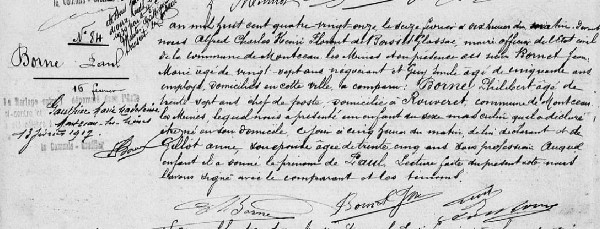 N° 84
Borne
Paul
16 février
Gauthier Marie
13 février 1912
L'an mil huit cent quatre vingt onze le seize février à six heures du matin. Devant
nous Alfred Charles Henri Florent de Boissot Glassac, maire officier de l'état civil
de la commune de Montceau les Mines et en présence des sieurs Bornet Jean
Marie âgé de vingt sept ans négociant et Guy Emile âgé de cinquante ans
employé, domiciliés en cette ville, a comparu: Borne Philibert âgé de
trente sept ans chef de poste, domicilié à Rouveret, commune de Montceau
les Mines, lequel nous a présenté un enfant du sexe masculin qu'il a déclaré
être né en son domicile ce jour à cinq heures du matin, de lui déclarant et de
Gillot Anne, son épouse âgée de trente cinq ans sans profession Auquel
enfant il a donné le prénom de Paul. Lecture faite du présent acte nous
l'avons signé avec le comparant et les témoins.
Borne
Bornet Jm